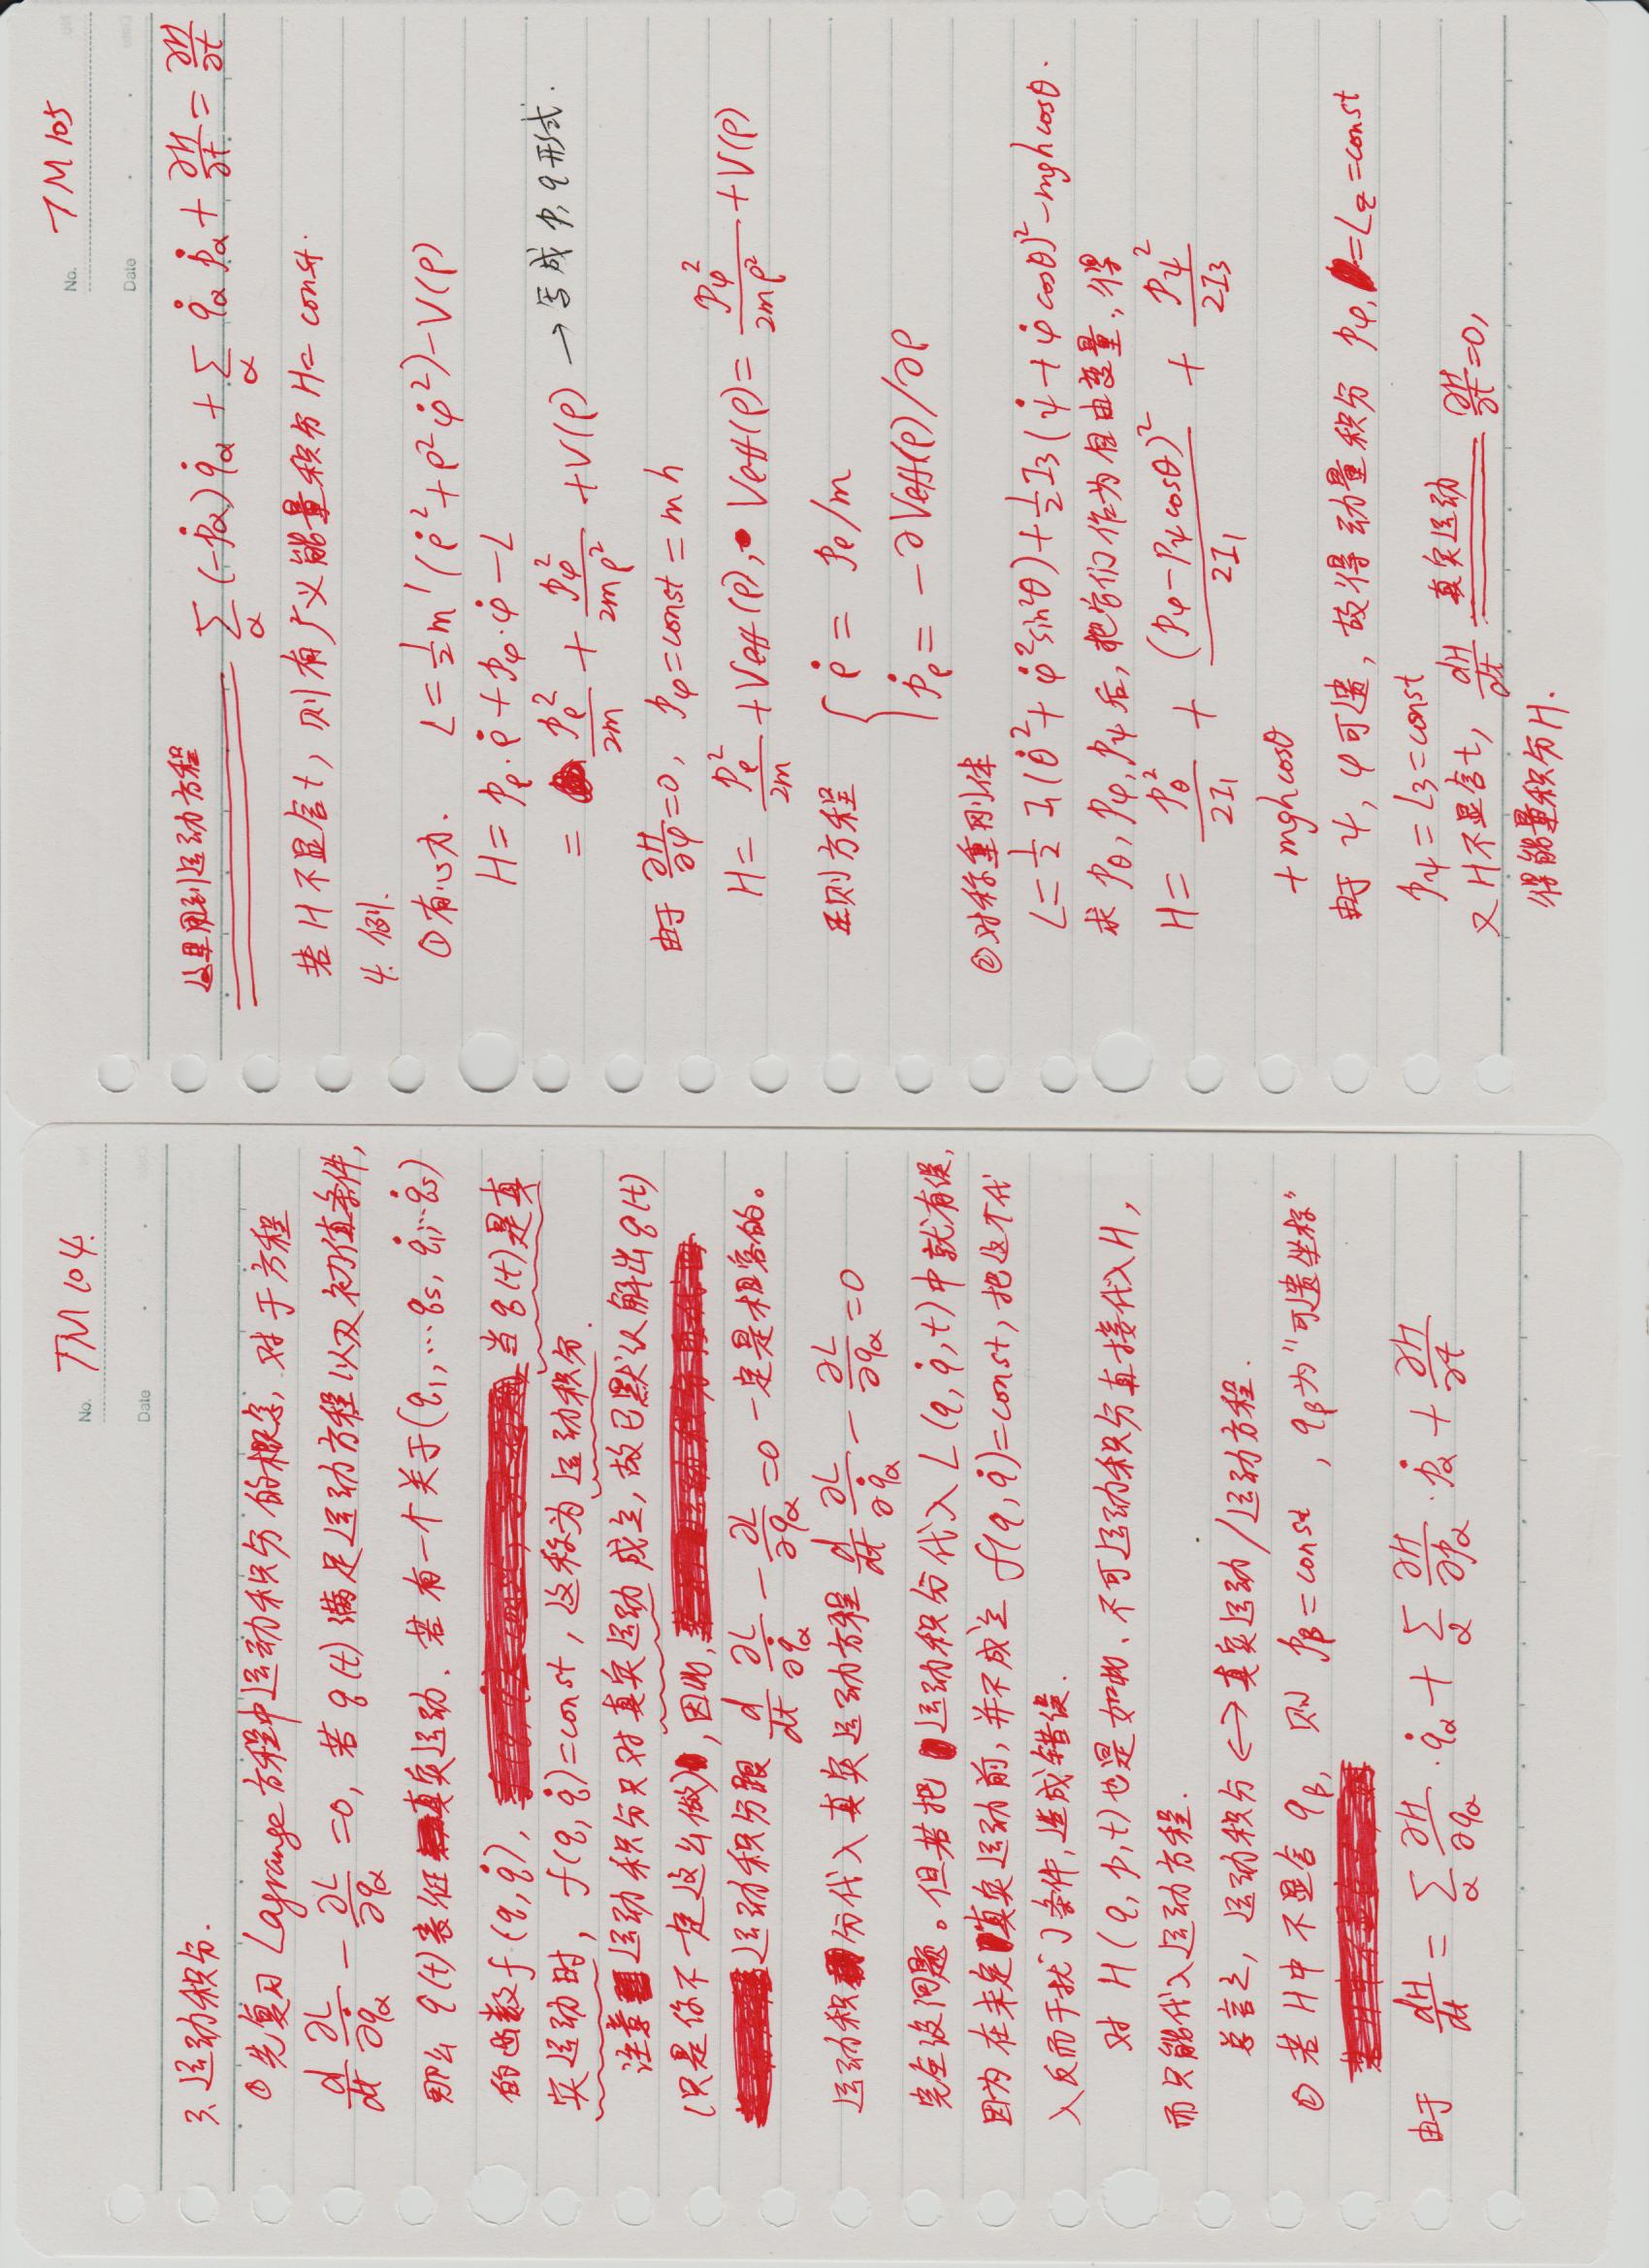 No. TM 104.
Date
3、运动积分.
① 先复习 Lagrange 方程中运动积分的概念, 对于方程
d/dt ∂L/∂q̇α − ∂L/∂qα = 0, 若 q(t) 满足运动方程以及初值条件,
那么 q(t) 表征真实运动. 若有一个关于(q₁,…qs, q̇₁,…q̇s)
的函数 f(q, q̇), 当 q(t) 是真
实运动时, f(q, q̇)=const, 这称为运动积分.
注意运动积分只对真实运动成立, 故已默认解出 q(t)
(只是你不一定这么做), 因此,
运动积分跟 d/dt ∂L/∂q̇α − ∂L/∂qα = 0 一定是相容的。
运动积分代入真实运动方程 d/dt ∂L/∂q̇α − ∂L/∂qα = 0
完全没问题。但若把运动积分代入 L(q, q̇, t) 中就有误,
因为在未定真实运动前, 并不成立 f(q, q̇)=const, 把这个代
入反而干扰了条件, 造成错误.
对 H(q, p, t) 也是如此、不可运动积分直接代入 H,
而只能代入运动方程.
总言之, 运动积分 ⟷ 真实运动/运动方程.
② 若 H 中不显含 qβ, 则 pβ = const, qβ 为"可遗坐标"
由于 dH/dt = Σα ∂H/∂qα · q̇α + Σα ∂H/∂pα · ṗα + ∂H/∂t
No. TM 105
Date
这里用到运动方程 Σα (−ṗα) q̇α + Σα q̇α ṗα + ∂H/∂t = ∂H/∂t
若 H 不显含 t, 则有广义能量积分 H = const.
4. 例.
① 有心力. L = ½ m' (ρ̇² + ρ² φ̇²) − V(ρ)
H = pρ · ρ̇ + pφ · φ̇ − L
= pρ²/2m + pφ²/2mρ² + V(ρ) → 写成 p, q 形式.
由于 ∂H/∂φ = 0, pφ = const = mh
H = pρ²/2m + Veff(ρ), Veff(ρ) = pφ²/2mρ² + V(ρ)
正则方程 { ρ̇ = pρ/m
ṗρ = −∂Veff(ρ)/∂ρ
② 对称重刚体
L = ½ I₁(θ̇² + φ̇² sin²θ) + ½ I₃(ψ̇ + φ̇ cosθ)² − mgh cosθ.
求 pθ, pφ, pψ 后, 把它们作为自由变量, 得
H = pθ²/2I₁ + (pφ − pψ cosθ)²/2I₁ + pψ²/2I₃
+ mgh cosθ
由于 ψ, φ 可遗, 故得动量积分 pφ, = Lz = const
pψ = L₃ = const
又 H 不显含 t, dH/dt 真实运动 ∂H/∂t = 0,
得能量积分 H.